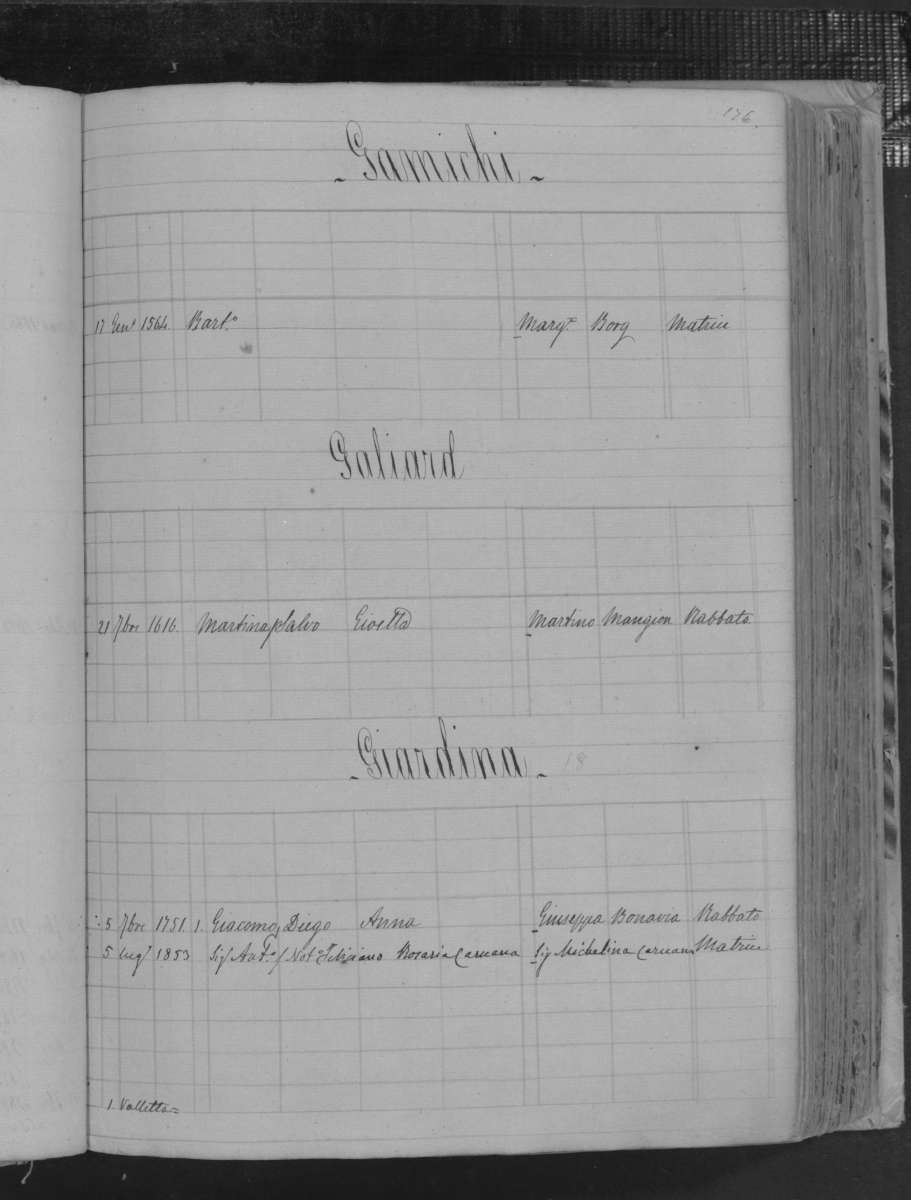 176.
- Gamichi -
17 Genº 1564 Bartº Margª Borg Matrice
Galiard
21 7bre 1616 Martina Salvo Gioetta Martino Mangion Rabbato
- Giardina - 18
5 7bre 1751 1. Giacomo Diego Anna Giuseppa Bonavia Rabbato
5 1853 Sigr Antº Notº Feliciano Rosaria Caruana Sig Michelina Caruana Matrice
1. Valletta =